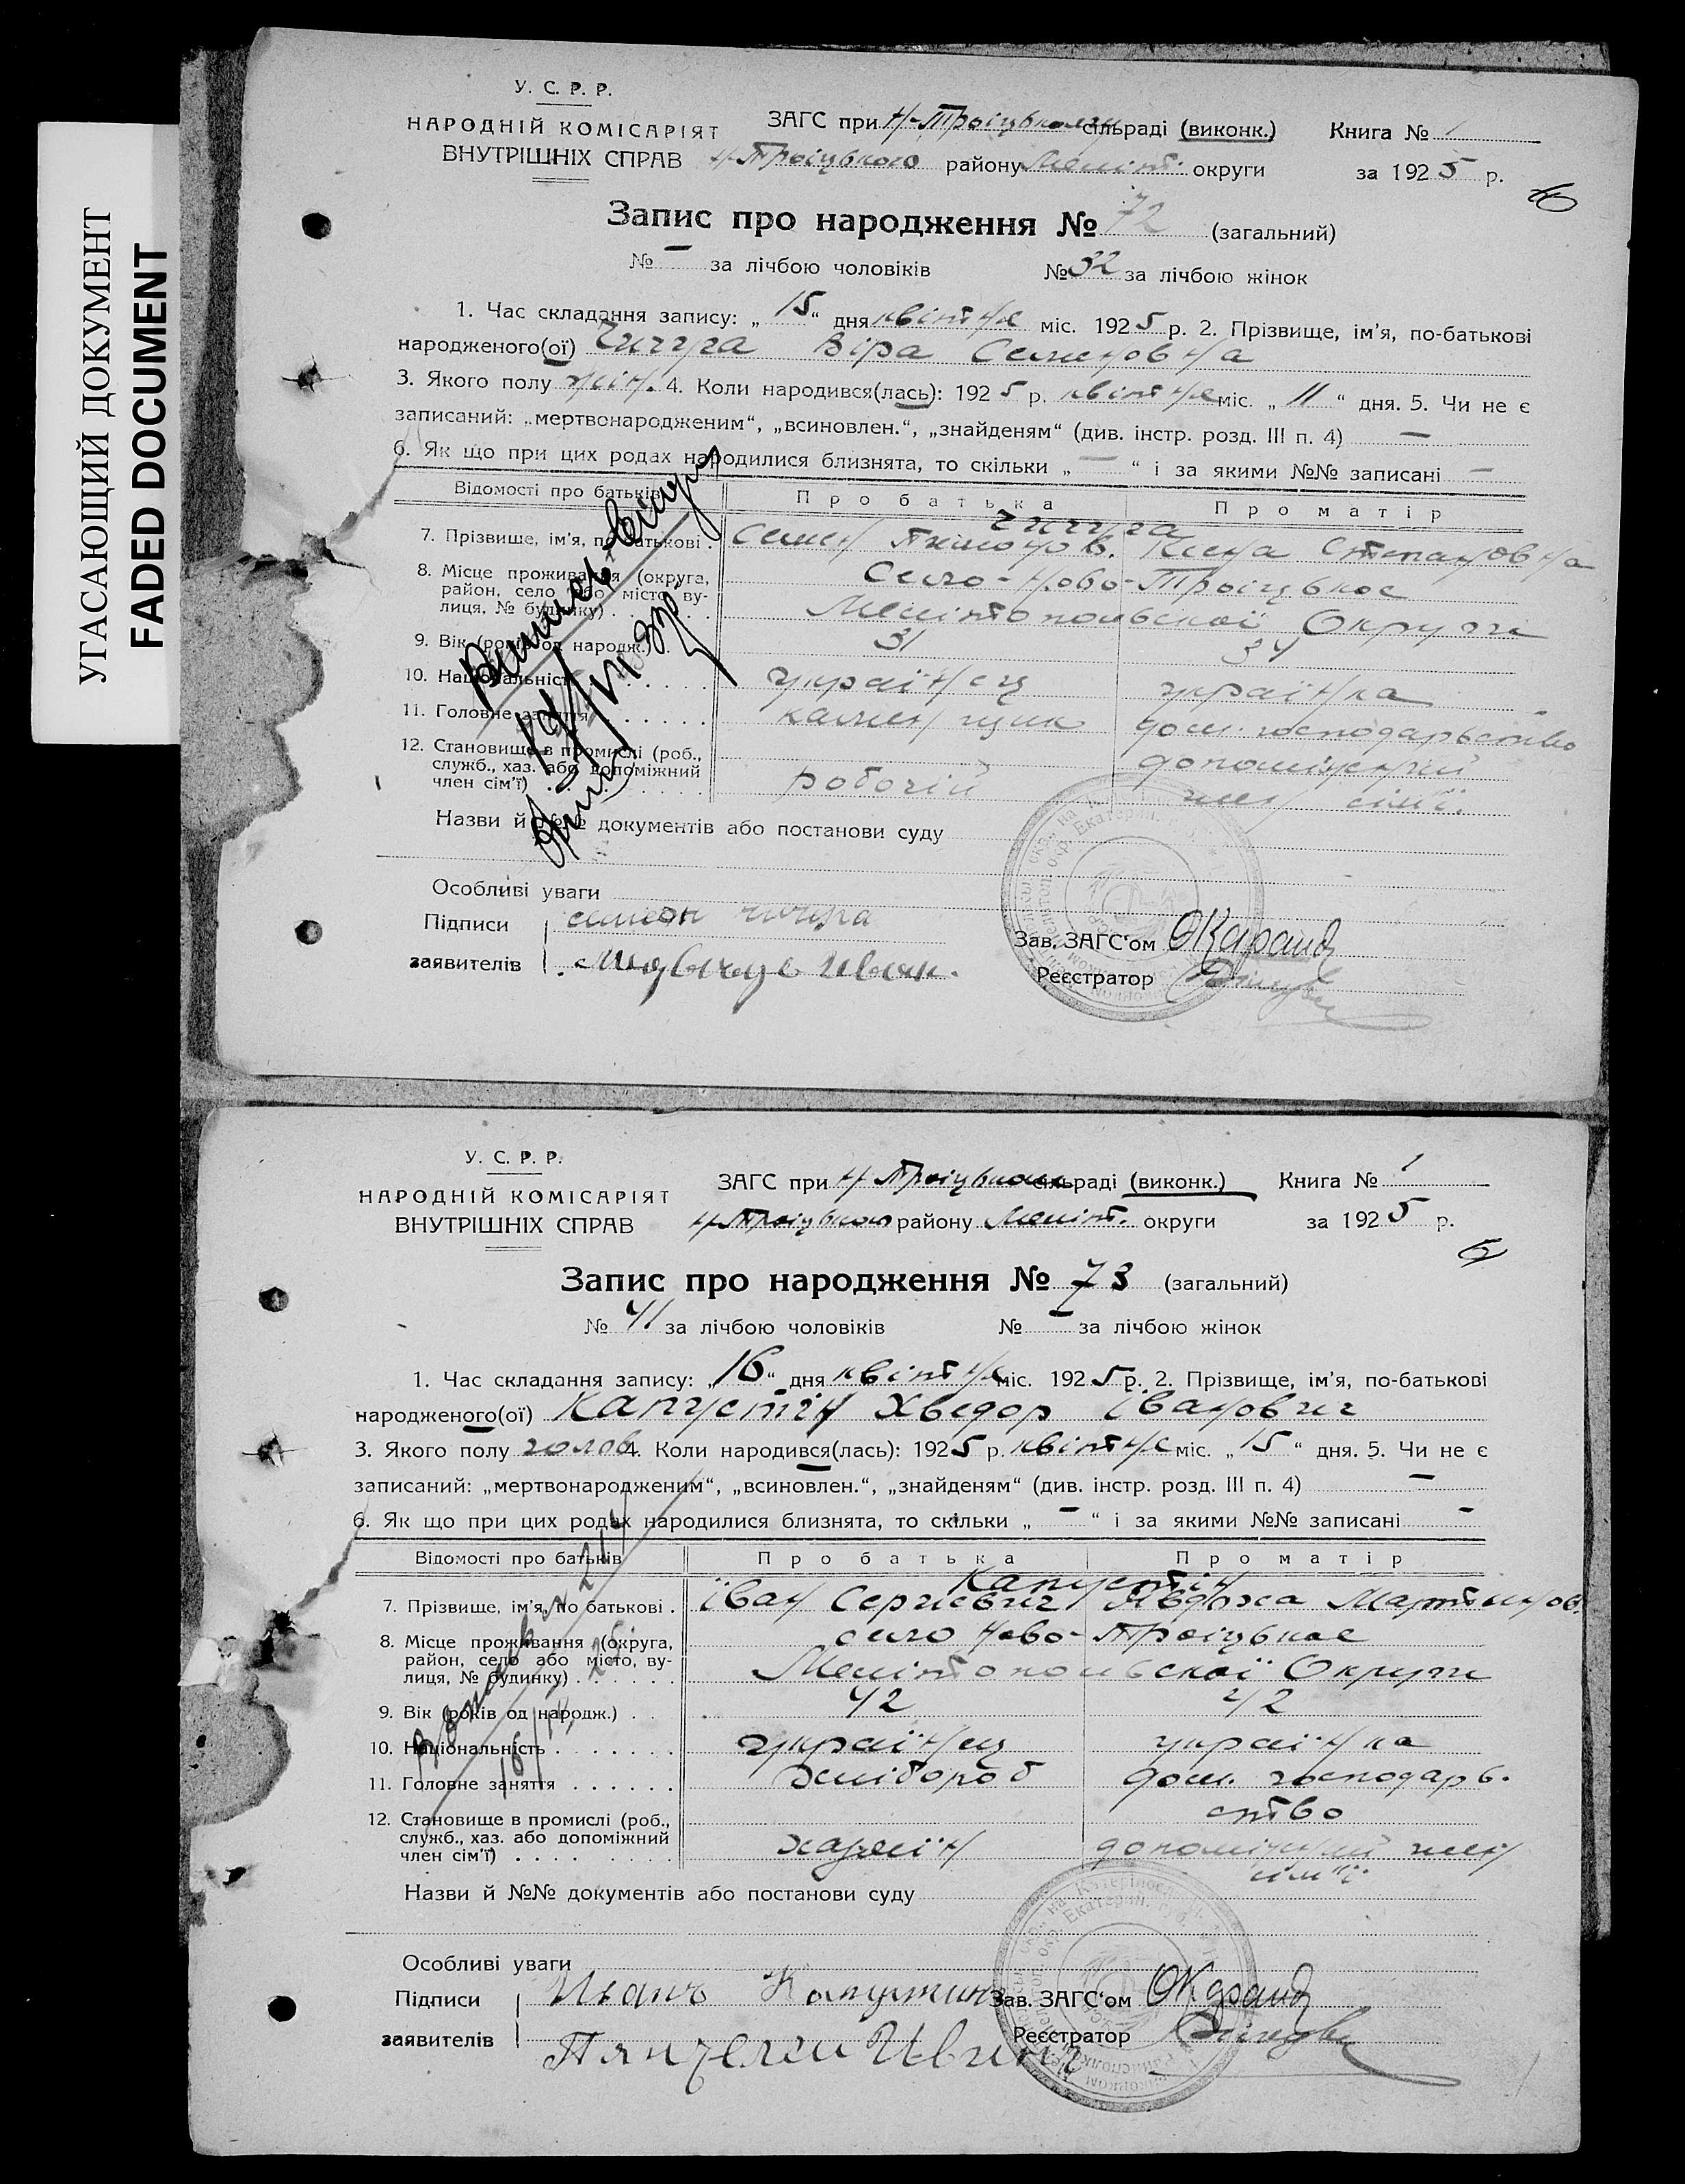 УГАСАЮЩИЙ ДОКУМЕНТ
FADED DOCUMENT
У. С. Р. Р.
НАРОДНІЙ КОМІСАРІЯТ
ВНУТРІШНІХ СПРАВ
ЗАГС при Н-Троіцькому сільраді (виконк.) Книга № 1
Н-Троіцького району Меліт. округи за 1925 р.
Запис про народження № 72 (загальний)
№ — за лічбою чоловіків № 32 за лічбою жінок
1. Час складання запису: „15“ дня квітня міс. 1925 р. 2. Прізвище, ім'я, по-батькові
народженого(ої) Чичура Віра Семеновна
3. Якого полу жін. 4. Коли народився(лась): 1925 р. квітня міс. „11“ дня. 5. Чи не є
записаний: „мертвонародженим“, „всиновлен.“, „знайденям“ (див. інстр. розд. III п. 4) —
6. Як що при цих родах народилися близнята, то скільки „—“ і за якими №№ записані —
Відомості про батьків Про батька Про матір
Чичура
7. Прізвище, ім'я, по батькові . Семен Пимонов. Ксена Степановна
8. Місце проживання (округа, район, село або місто, вулиця, № будинку) . . Село-Ново-Троіцькое
Мелітопольскоі Округи
9. Вік (років од народж.) . . 31 34
10. Національність . . . . . . українец українка
11. Головне заняття . . . . . . каменщик дом. господарьство
12. Становище в промислі (роб., служб., хаз. або допоміжний член сім'ї) . . . робочій допоміжний
член сімї.
Назви й №№ документів або постанови суду
Особливі уваги
Підписи семен чичура
заявителів Иван.
Зав. ЗАГС'ом
Реєстратор
У. С. Р. Р.
НАРОДНІЙ КОМІСАРІЯТ
ВНУТРІШНІХ СПРАВ
ЗАГС при Н Троіцьком сільраді (виконк.) Книга № 1
Н Троіцького району Меліт. округи за 1925 р.
Запис про народження № 73 (загальний)
№ 41 за лічбою чоловіків № — за лічбою жінок
1. Час складання запису: „16“ дня квітня міс. 1925 р. 2. Прізвище, ім'я, по-батькові
народженого(ої) Капустін Хведор Іванович
3. Якого полу чолов. 4. Коли народився(лась): 1925 р. квітня міс. „15“ дня. 5. Чи не є
записаний: „мертвонародженим“, „всиновлен.“, „знайденям“ (див. інстр. розд. III п. 4) —
6. Як що при цих родах народилися близнята, то скільки „—“ і за якими №№ записані —
Відомості про батьків Про батька Про матір
Капустін
7. Прізвище, ім'я, по батькові . Іван Сергієвич Явдоха Мартинов.
8. Місце проживання (округа, район, село або місто, вулиця, № будинку) . . . село Ново-Троіцькое
Мелітопольскої Округи
9. Вік (років од народж.) . . 42 42
10. Національність . . . . . . українец українка
11. Головне заняття . . . . . . хлібороб дом. господарь-
ство
12. Становище в промислі (роб., служб., хаз. або допоміжний член сім'ї) . . . хазяїн допоміжний член
сім'ї
Назви й №№ документів або постанови суду
Особливі уваги
Підписи Иванъ Капустинъ
заявителів
Зав. ЗАГС'ом
Реєстратор